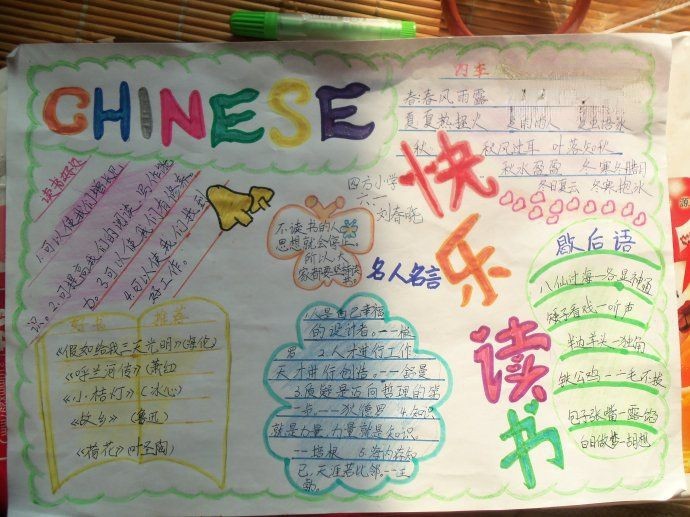 CHINESE
四季
春:春风雨露
夏:夏热握火
夏虫语冰
秋
秋风过耳 叶落知秋
秋水盈盈 冬寒
冬日夏云 冬寒抱冰
快乐读书
读书好处
1.可以使我们增长见
识。2.可提高我们的阅读、写作能
力。3.可以使我们有修养
4.可以使我们找到
好工作。
四方小学
六.一
刘春晓
不读书的人,
思想就会停止。
所以,大
家都要
名人名言
歇后语
八仙过海--各显神通
矮子看戏--听声
半山羊头--独角
铁公鸡--一毛不拔
包子张嘴--露馅
白日做梦--胡想
好书 推荐
《假如给我三天光明》(海伦)
《呼兰河传》(萧红)
《小桔灯》(冰心)
《故乡》(鲁迅)
《荷花》(叶圣陶)
1.人是自己幸福
的设计者。--梭
罗 2.人才进行工作,
天才进行创造。--舒曼
3.质疑是迈向哲理的第
一步--狄德罗 4.知识
就是力量,力量就是知识。
--培根 5.海内存知
己,天涯若比邻。--王
勃。